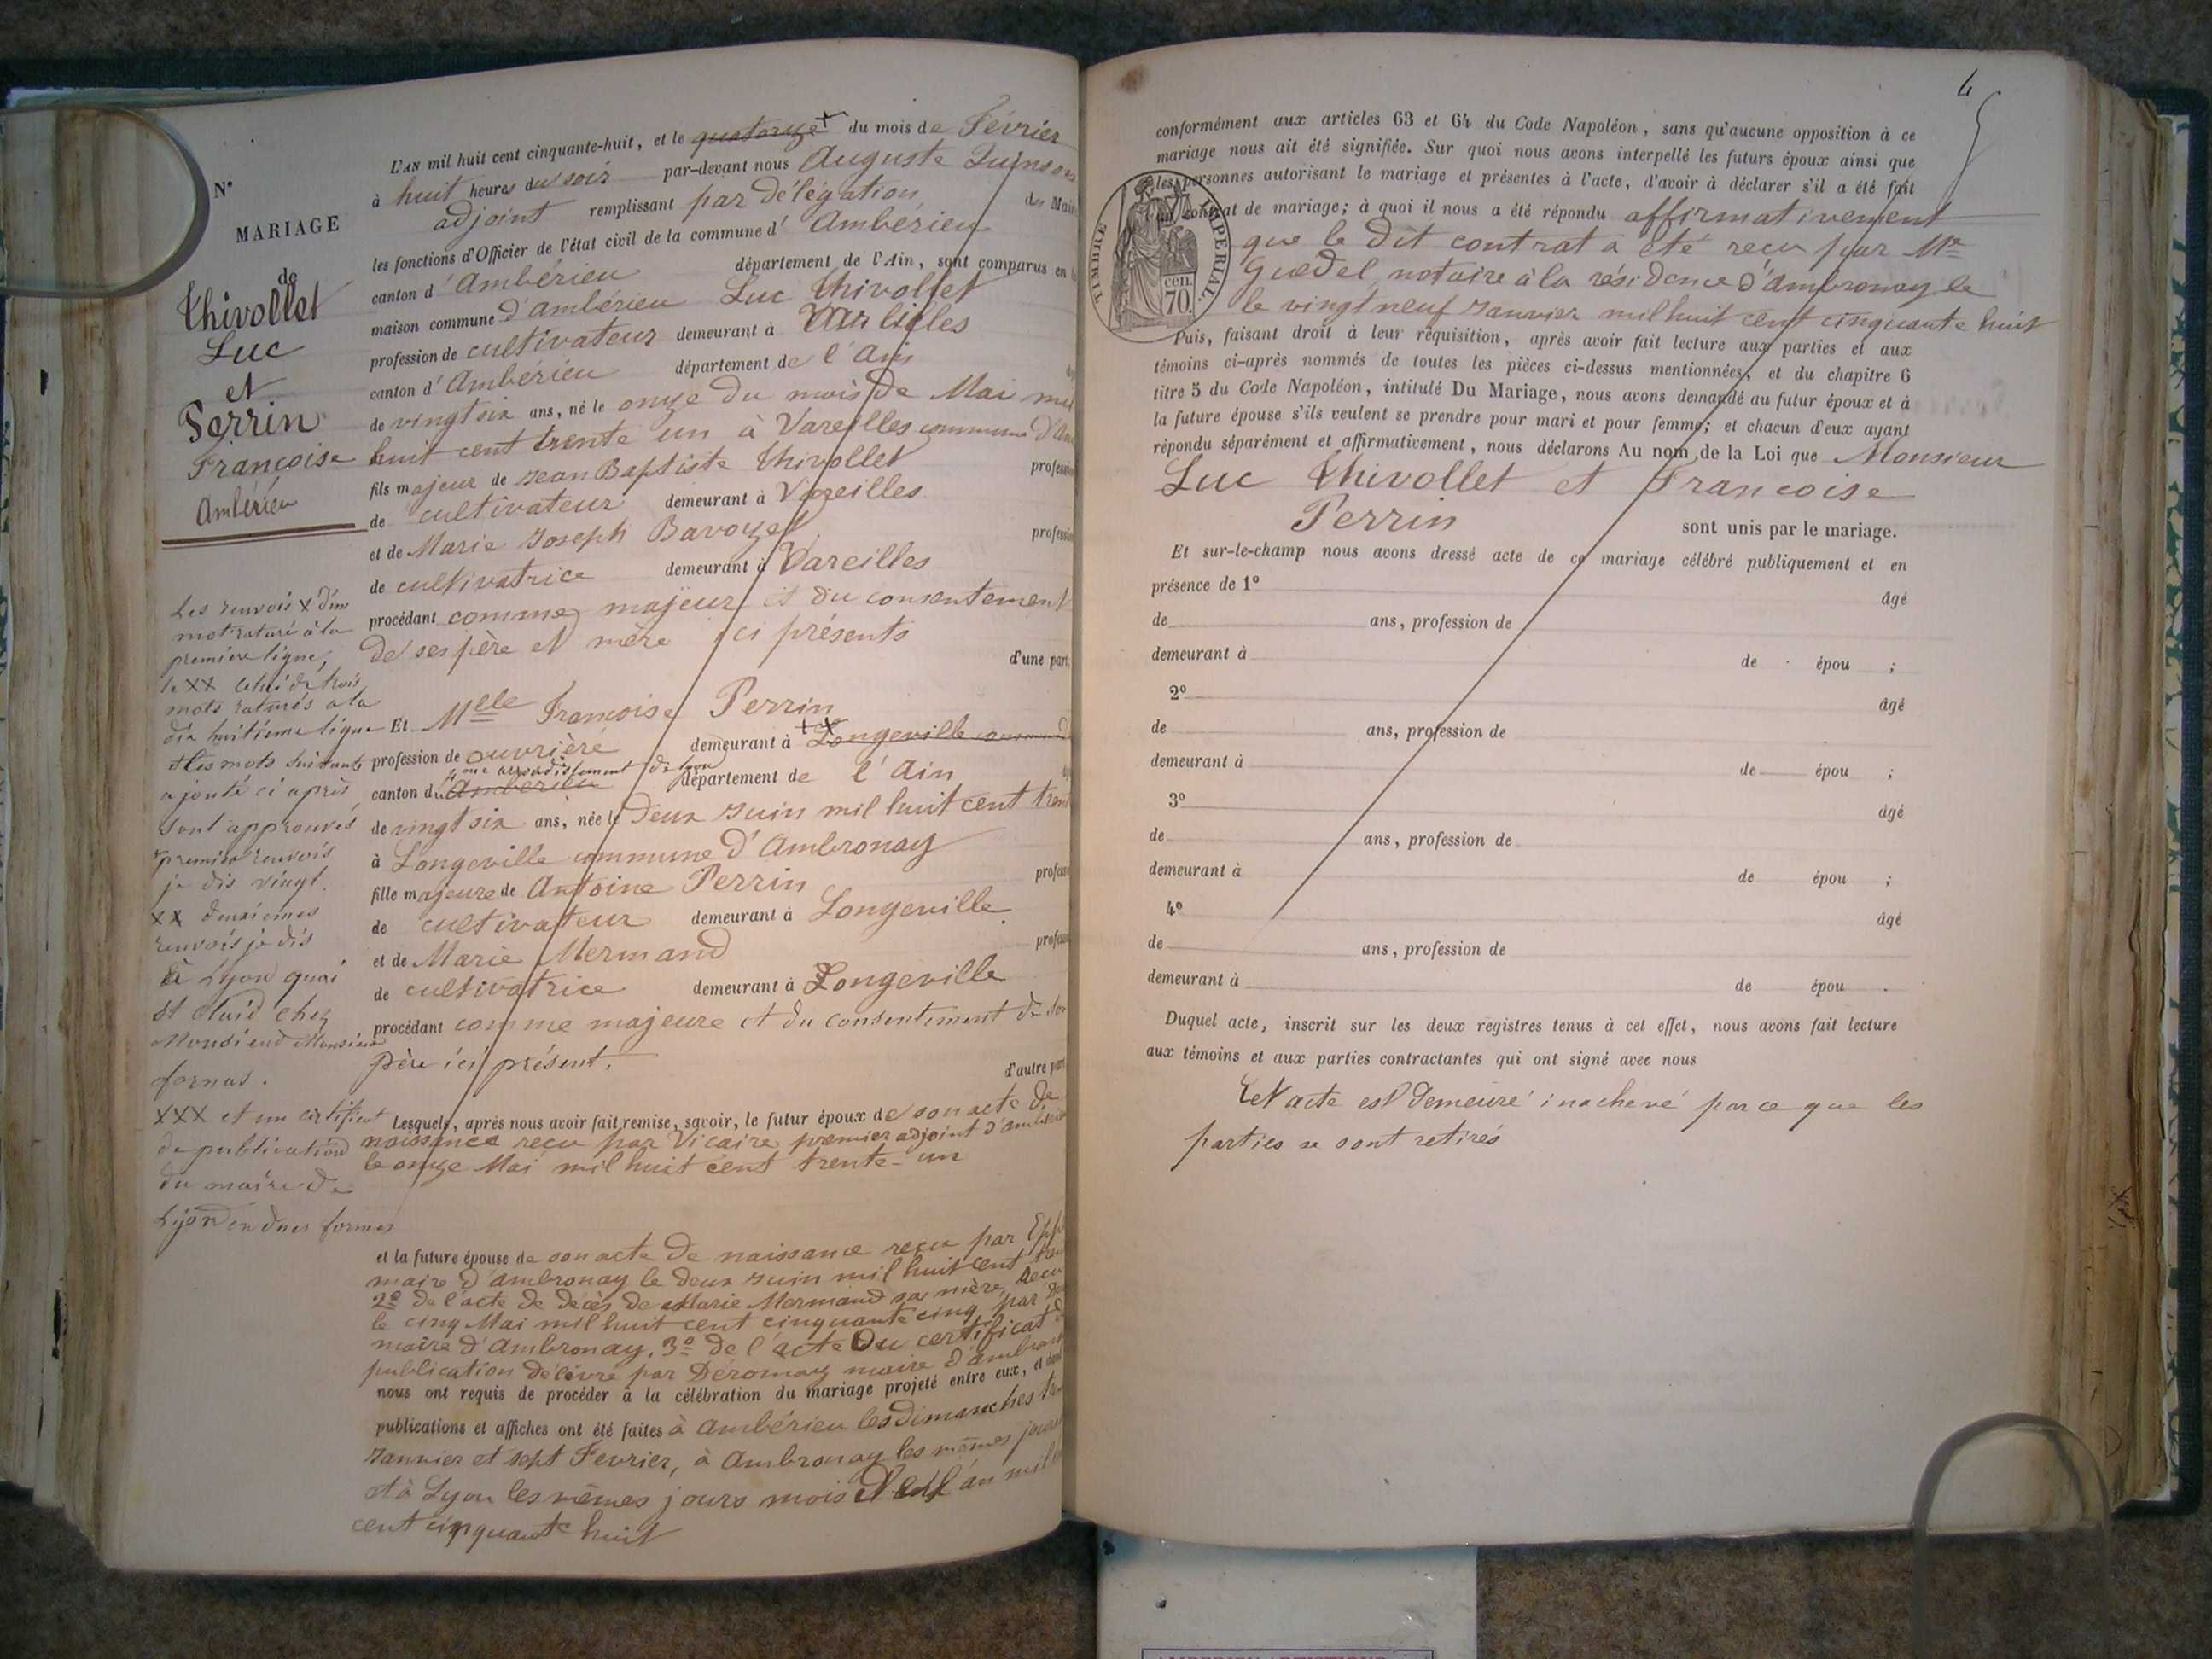 N°
MARIAGE
de
Thivollet
Luc
et
Perrin
Françoise
Ambérieu
Les renvois X d'un
mot raturé à la
première ligne,
le XX celui de trois
mots raturés a la
dix huitieme ligne
et les mots suivants
ajouté ci après
sont approuvés
premier renvois
je dis vingt.
XX deuxiemes
renvois je dis
à Lyon quai
St Clair chez
Monsieur Monsieur
fornas.
XXX et un certificat
de publication
du maire de
Lyon en dues formes
L'AN mil huit cent cinquante-huit, et le quatorze X du mois de Février
à huit heures du soir par-devant nous Auguste Quinson
adjoint remplissant par délégation du Mair
les fonctions d'Officier de l'état civil de la commune d' Ambérieu
canton d' Ambérieu département de l'Ain, sont comparus en l
maison commune d'ambérieu Luc Thivollet
profession de cultivateur demeurant à Vareilles
canton d' Ambérieu département de l'Ain
de vingt six ans, né le onze du mois de Mai mil
huit cent trente un à Vareilles commune d'Am
fils majeur de Jean Baptiste Thivollet profession
de cultivateur demeurant à Vareilles
et de Marie Joseph Bavozet profession
de cultivatrice demeurant à Vareilles
procédant comme majeur et du consentement
de ses père et mère ici présents
d'une part.
Et Mlle Françoise Perrin
profession de ouvrière demeurant à XX Longeville commune d
canton du Ambérieu 4me arrondissement de Lyon département de l'Ain
de vingt six ans, née le deux Juin mil huit cent tren
à Longeville commune d'Ambronay
fille majeure de Antoine Perrin profession
de cultivateur demeurant à Longeville.
et de Marie Mermand profession
de cultivatrice demeurant à Longeville
procédant comme majeure et du consentement de son
père ici présent.
d'autre part
Lesquels, après nous avoir fait remise, savoir, le futur époux de son acte de
naissance reçu par Vicaire premier adjoint d'ambérieu
le onze Mai mil huit cent trente-un
et la future épouse de son acte de naissance reçu par
maire d'ambronay le deux Juin mil huit cent tren
2° de l'acte de décès de Marie Mermand sa mère, reçu
le cinq Mai mil huit cent cinquante cinq par
maire d'Ambronay, 3° de l'acte Du certificat d
publication délivré par Déromay maire d'ambronay
nous ont requis de procéder à la célébration du mariage projeté entre eux, et dont
publications et affiches ont été faites à ambérieu les dimanches tren
Janvier et sept Fevrier, à Ambronay les mêmes jours
et à Lyon les mêmes jours mois et an mil
cent cinquante huit
4
conformément aux articles 63 et 64 du Code Napoléon, sans qu'aucune opposition à ce
mariage nous ait été signifiée. Sur quoi nous avons interpellé les futurs époux ainsi que
les personnes autorisant le mariage et présentes à l'acte, d'avoir à déclarer s'il a été fait
un contrat de mariage; à quoi il nous a été répondu affirmativement
que le dit contrat a été reçu par Me
Guedel, notaire à la résidence d'Ambronay le
le vingt neuf Janvier mil huit cent cinquante huit
TIMBRE IMPERIAL.
cen. 70.
Puis, faisant droit à leur réquisition, après avoir fait lecture aux parties et aux
témoins ci-après nommés de toutes les pièces ci-dessus mentionnées, et du chapitre 6
titre 5 du Code Napoléon, intitulé Du Mariage, nous avons demandé au futur époux et à
la future épouse s'ils veulent se prendre pour mari et pour femme; et chacun d'eux ayant
répondu séparément et affirmativement, nous déclarons Au nom de la Loi que Monsieur
Luc Thivollet et Françoise
Perrin sont unis par le mariage.
Et sur-le-champ nous avons dressé acte de ce mariage célébré publiquement et en
présence de 1° âgé
de ans, profession de
demeurant à de épou ;
2° âgé
de ans, profession de
demeurant à de épou ;
3° âgé
de ans, profession de
demeurant à de épou ;
4° âgé
de ans, profession de
demeurant à de épou .
Duquel acte, inscrit sur les deux registres tenus à cet effet, nous avons fait lecture
aux témoins et aux parties contractantes qui ont signé avec nous
Cet acte est demeuré inachevé parce que les
parties se sont retirés